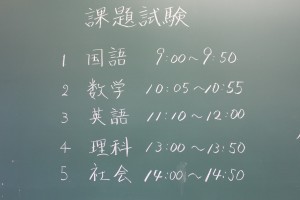 課題試験
1 国語 9:00～9:50
2 数学 10:05～10:55
3 英語 11:10～12:00
4 理科 13:00～13:50
5 社会 14:00～14:50